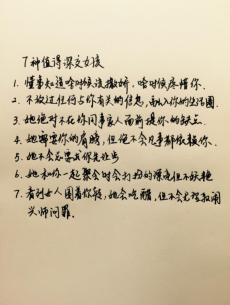 7种值得深交女孩
1. 懂事知道啥时候该撒娇，啥时候疼懂你。
2. 不放过任何与你有关的信息，更融入你的生活圈。
3. 她绝对不在你同事家人面前提你的缺点。
4. 她需要你的肩膀，但绝不会凡事都依赖你。
5. 她不会总要求你先让步
6. 她和你一起聚会时会打扮的漂亮但不妖艳
7. 看到女人围着你转，她会吃醋，但不会无理取闹
兴师问罪。